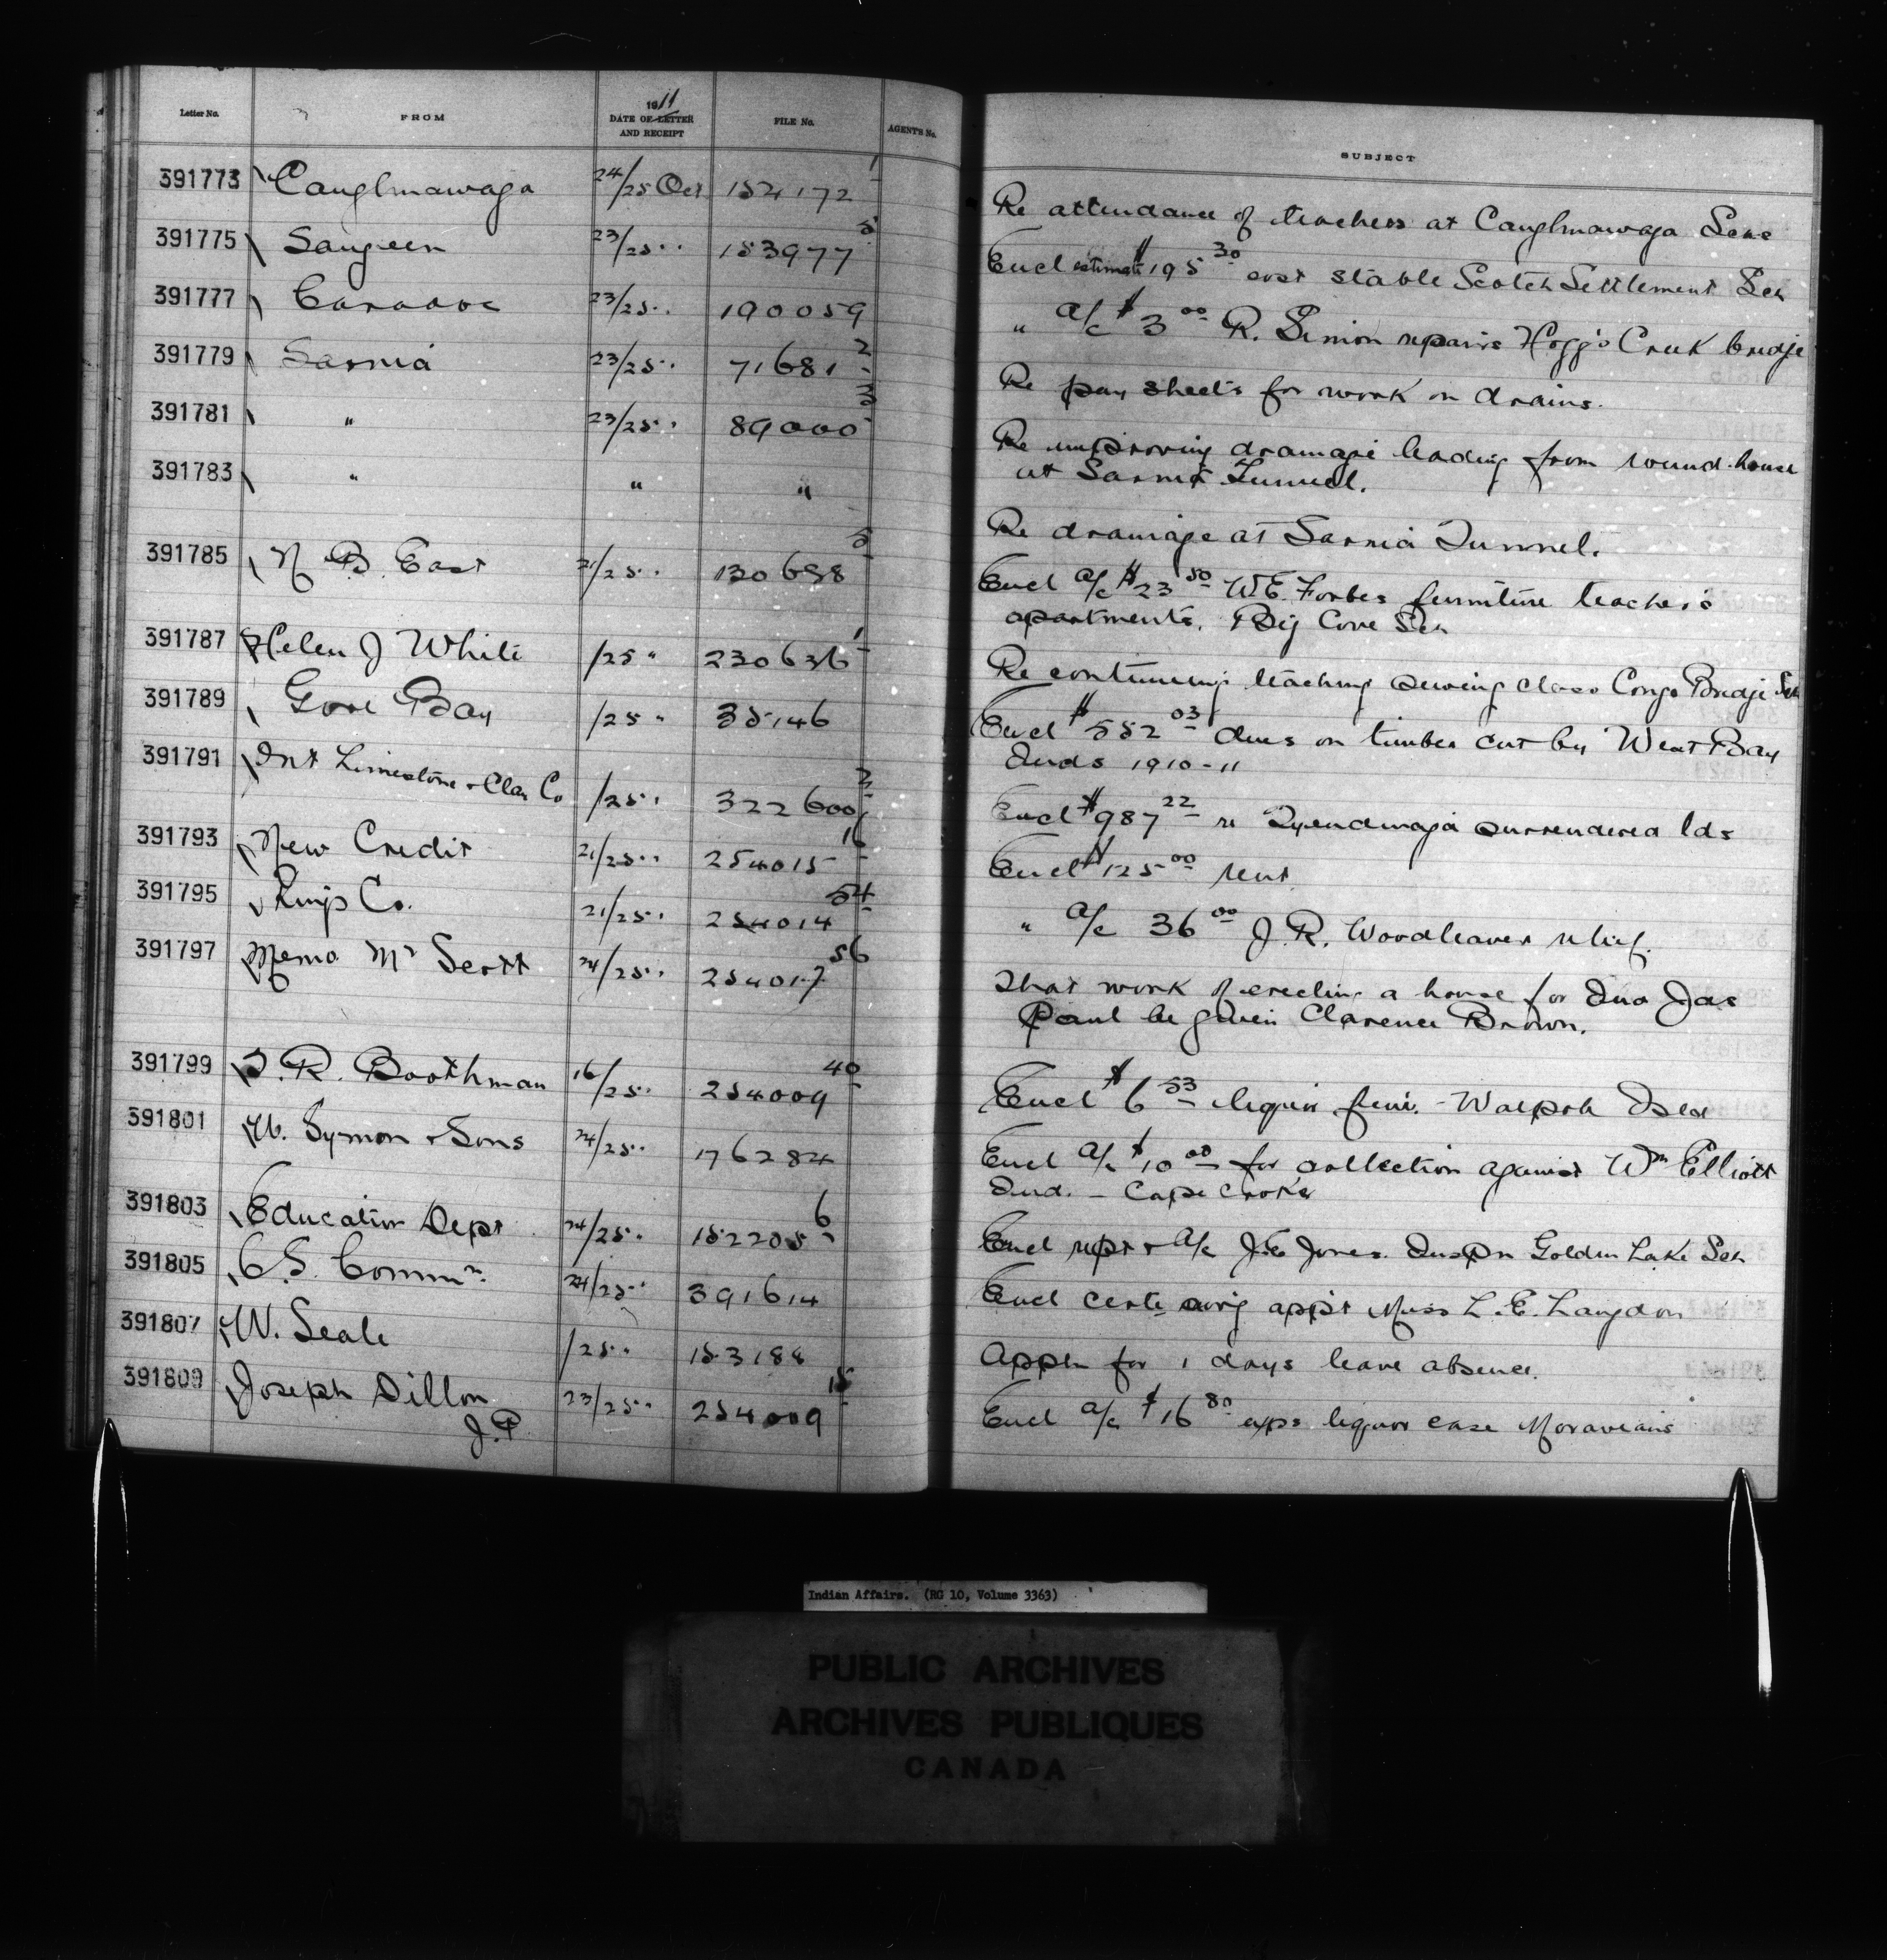 Letter No. FROM 1911 DATE OF LETTER AND RECEIPT FILE No. AGENT'S No. SUBJECT
391773 Caughnawaga 24/25 Oct 152172 1 Re attendance of teachers at Caughnawaga Schs
391775 Saugeen 23/25 " 153977 5 Encl estimate $195 30 cost stable Scotch Settlement Sch
391777 Caradoc 23/25 " 190059 " a/c $3 00 R. Simon repairs Hogg's Creek bridge
391779 Sarnia 23/25 " 71681 2 Re pay sheets for work on drains.
391781 " 23/25 " 89000 3 Re improving drainage leading from round-house
at Sarnia Tunnel.
391783 " " " Re drainage at Sarnia Tunnel.
391785 N B. East 21/25 " 130688 5 Encl a/c $23 50 W.E. Forbes furniture teacher's
apartments, Big Cove Sch
391787 Helen J White /25 " 230636 1 Re continuing teaching sewing class Congo Bridge Sch
391789 Gore Bay /25 " 35146 Encl $552 03 dues on timber cut by West Bay
Inds 1910-11
391791 Int Limestone & Clay Co /25 " 322600 2 Encl $987 22 re Tyendinaga surrendered lds
391793 New Credit 21/25 " 254015 16 Encl $125 00 rent
391795 Kings Co. 21/25 " 254014 54 " a/c 36 00 J. R. Woodleaver relief.
391797 Memo Mr Scott 24/25 " 254017 56 That work of erecting a house for Ind Jas
Paul be given Clarence Brown.
391799 R. Boothman 16/25 " 254009 40 Encl $6 53 liquor fine. - Walpole Isld
391801 W. Symon & Sons 24/25 " 176284 Encl a/c $10 00 for collection against Wm Elliott
Ind. - Cape Croker
391803 Education Dept 24/25 " 152205 6 Encl rept & a/c J.E. Jones. Inspn Golden Lake Sch
391805 C.S. Commn. 24/25 " 391614 Encl certe auig appt Miss L. E. Langdon
391807 W. Seale /25 " 153188 Appln for 1 days leave absence.
391809 Joseph Dillon 23/25 " 254009 15 Encl a/c $16 80 exps liquor case Moravians
J.P.
Indian Affairs. (RG 10, Volume 3363)
PUBLIC ARCHIVES
ARCHIVES PUBLIQUES
CANADA